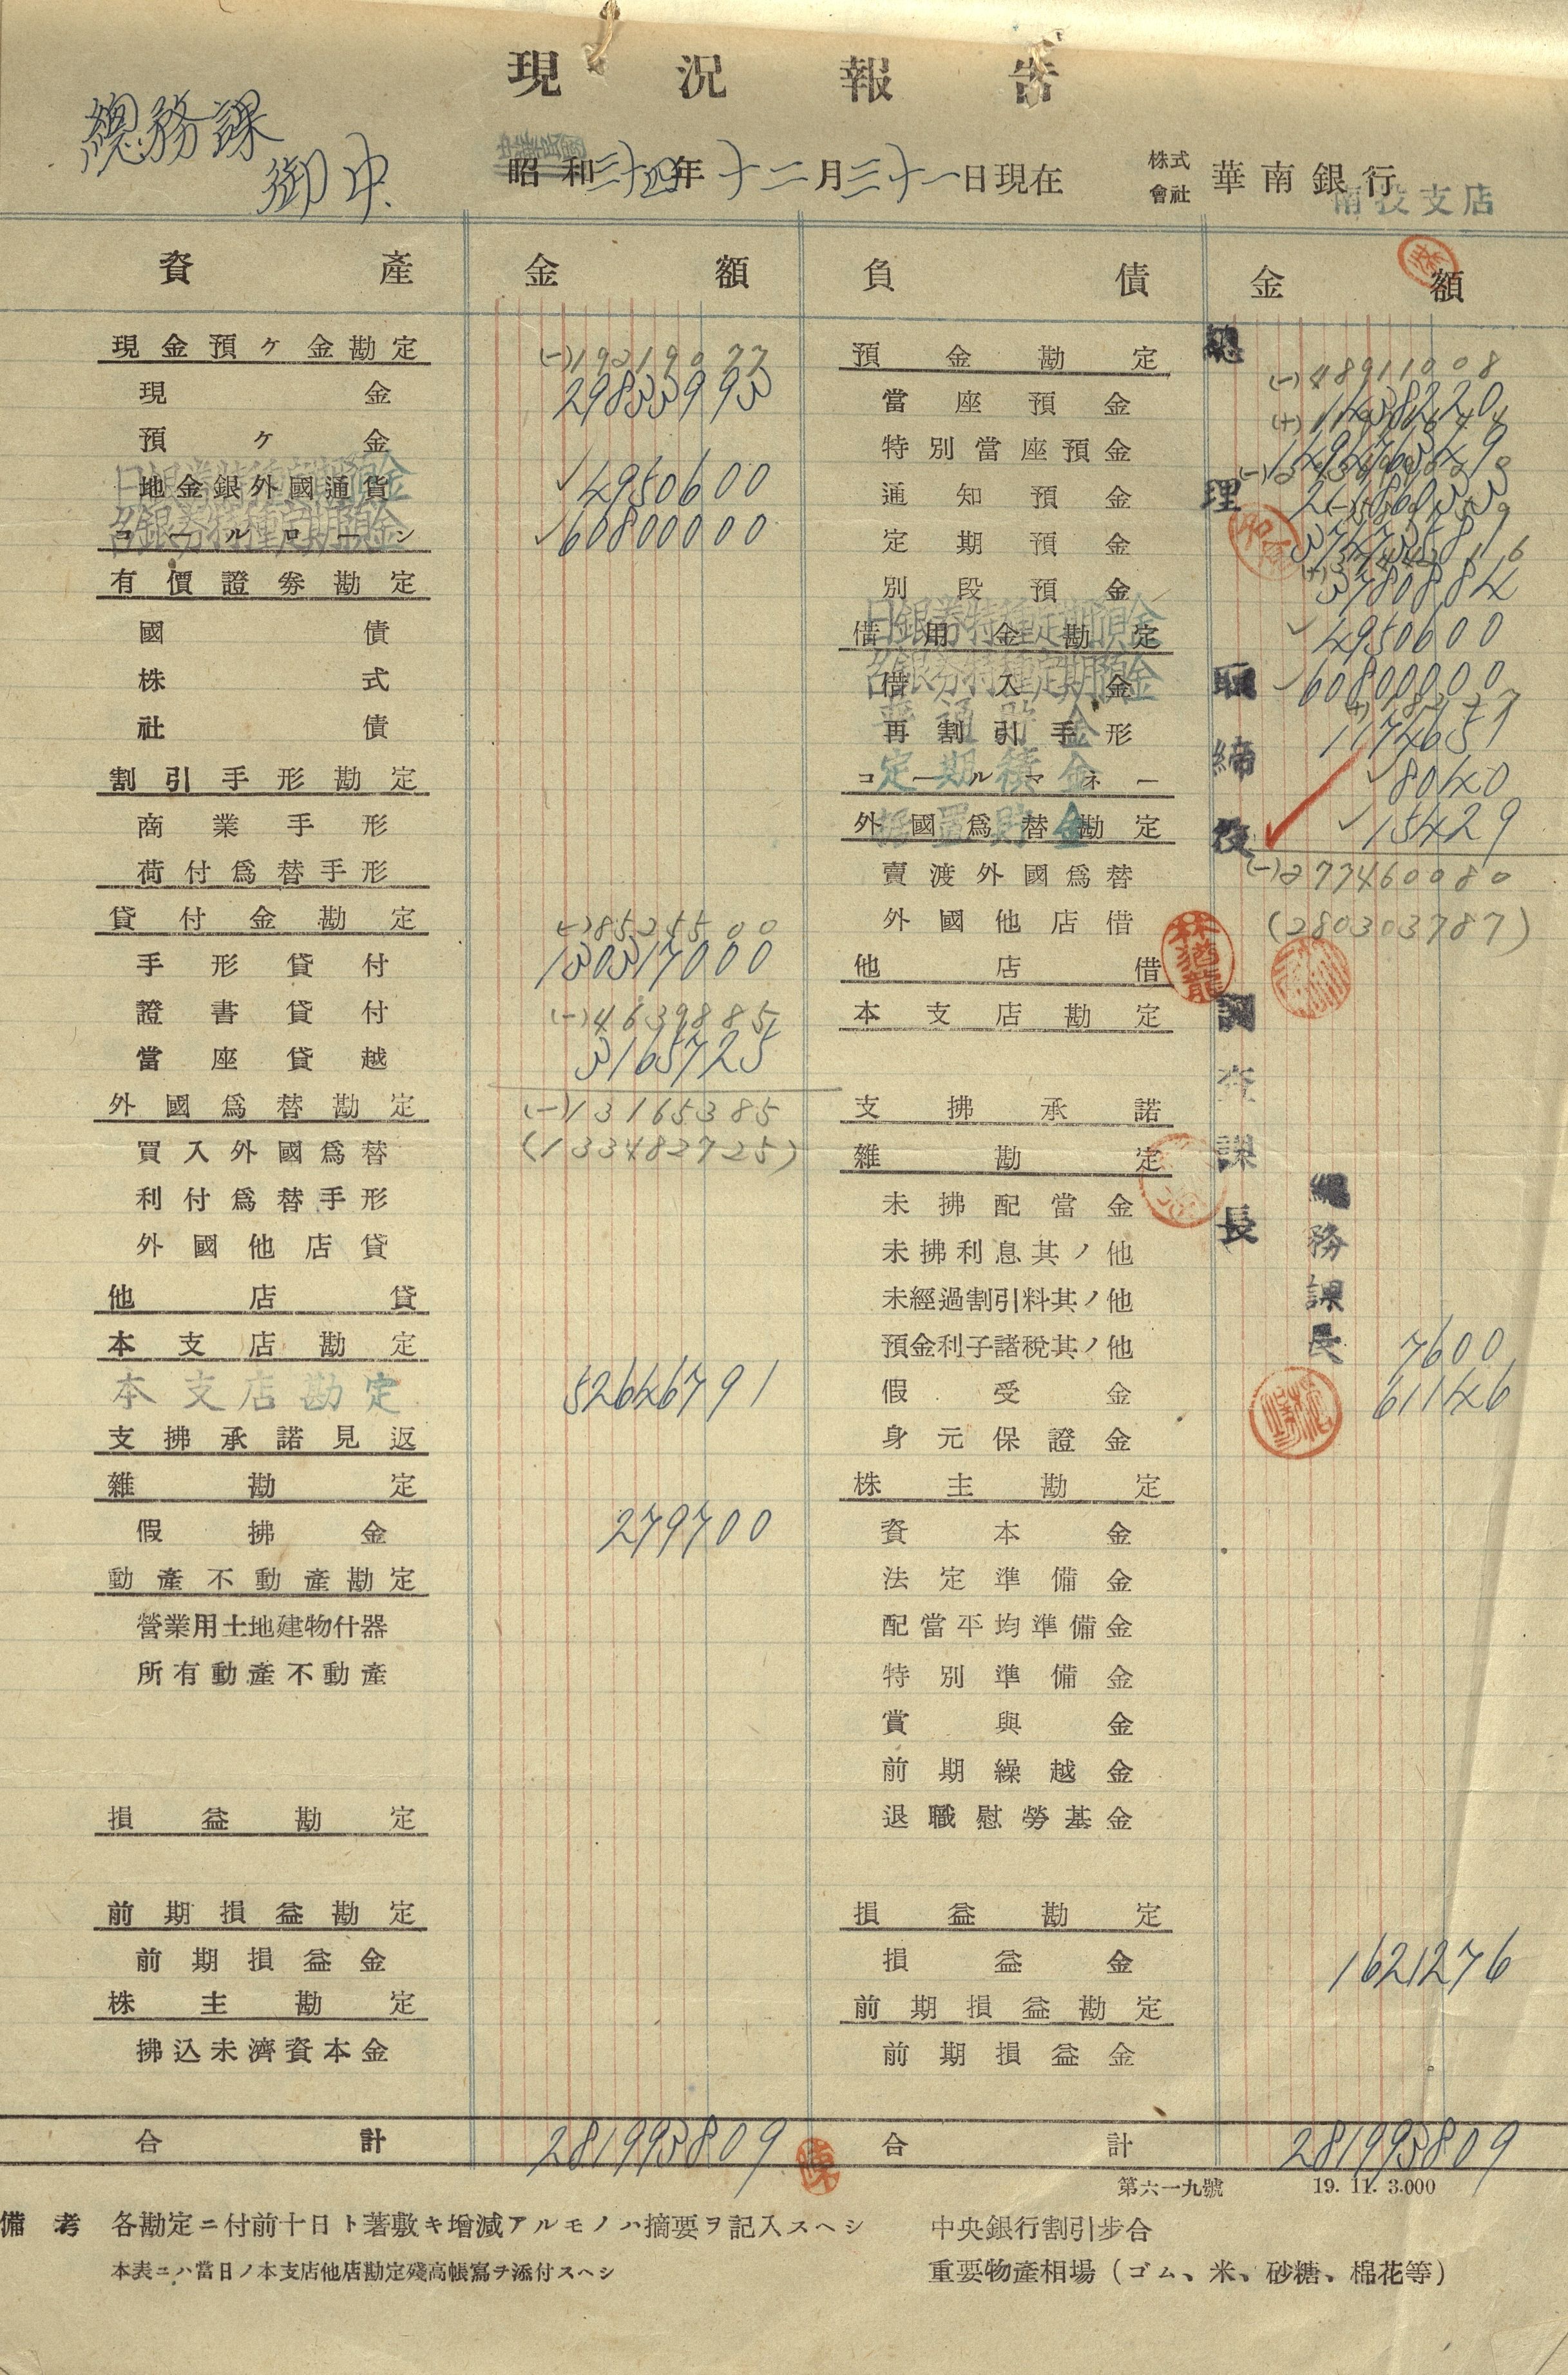 現況報告
總務課
御中
昭和三十四年十二月三十一日現在
株式會社 華南銀行
南投支店
資產 金額 負債 金額
現金預ケ金勘定 (-)19219077
現金 29833993
預ケ金
日銀券特種定期預金
地金銀外國通貨 ✓4950600
台銀券特種定期預金
コールローン ✓60800000
有價證券勘定
國債
株式
社債
割引手形勘定
商業手形
荷付爲替手形
貸付金勘定 (-)8525500
手形貸付 130317000
證書貸付 (-)4639885
當座貸越 3165725
外國爲替勘定 (-)13165385
買入外國爲替 (133482725)
利付爲替手形
外國他店貸
他店貸
本支店勘定
本支店勘定 52646791
支拂承諾見返
雜勘定
假拂金 279700
動產不動產勘定
營業用土地建物什器
所有動產不動產
損益勘定
前期損益勘定
前期損益金
株主勘定
拂込未濟資本金
合計 281993809
預金勘定 (-)48911008
當座預金 11438220
特別當座預金 149276349
通知預金
定期預金
別段預金 3780884
日銀券特種定期預金
借用金勘定 ✓4950600
台銀券特種定期預金
借入金 ✓60800000
普通貯金
再割引手形 1174651
定期積金
コールマネー ✓80140
据置貯金
外國爲替勘定 ✓15429
賣渡外國爲替 (-)277460080
外國他店借 (280303787)
他店借
本支店勘定
支拂承諾
雜勘定
未拂配當金
未拂利息其ノ他
未經過割引料其ノ他
預金利子諸稅其ノ他 7600
假受金 61146
身元保證金
株主勘定
資本金
法定準備金
配當平均準備金
特別準備金
賞與金
前期繰越金
退職慰勞基金
損益勘定
損益金 1621276
前期損益勘定
前期損益金
合計 281993809
總理
取締役
調查課長
總務課長
林猶龍
陳
第六一九號 19. 11. 3.000
備考 各勘定ニ付前十日ト著敷キ增減アルモノハ摘要ヲ記入スヘシ
本表ニハ當日ノ本支店他店勘定殘高帳寫ヲ添付スヘシ
中央銀行割引步合
重要物產相場(ゴム、米、砂糖、棉花等)